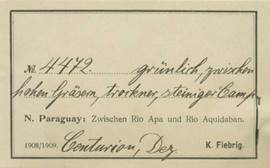 № 4472. grünlich, zwischen
hohen Gräsern, trockner, steiniger Camp
N. Paraguay: Zwischen Rio Apa und Rio Aquidaban.
1908/1909. Centurion, Dez K. Fiebrig.